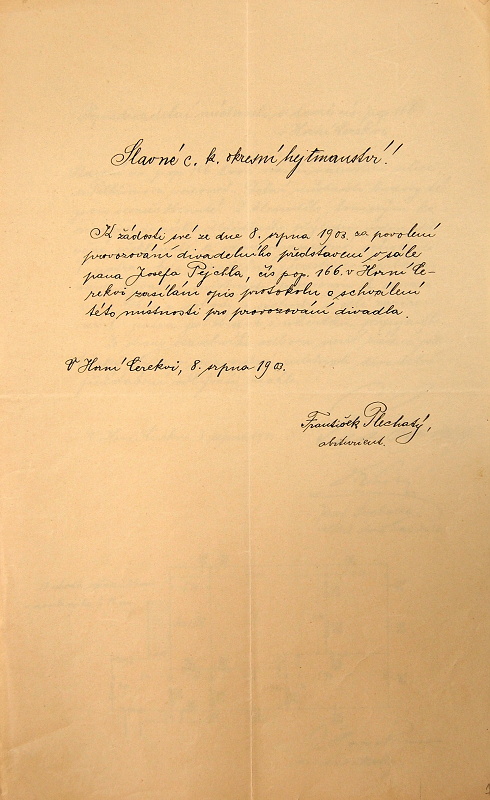 Slavné c. k. okresní hejtmanství!
K žádosti své ze dne 8. srpna 1903 za povolení
provozování divadelního představení v sále
pana Josefa Pejchla, čís pop. 166. v Horní Ce-
rekvi zasílám opis protokolu o schválení
této místnosti pro provozování divadla.
V Horní Cerekvi, 8. srpna 1903.
František Plechatý,
abiturient.